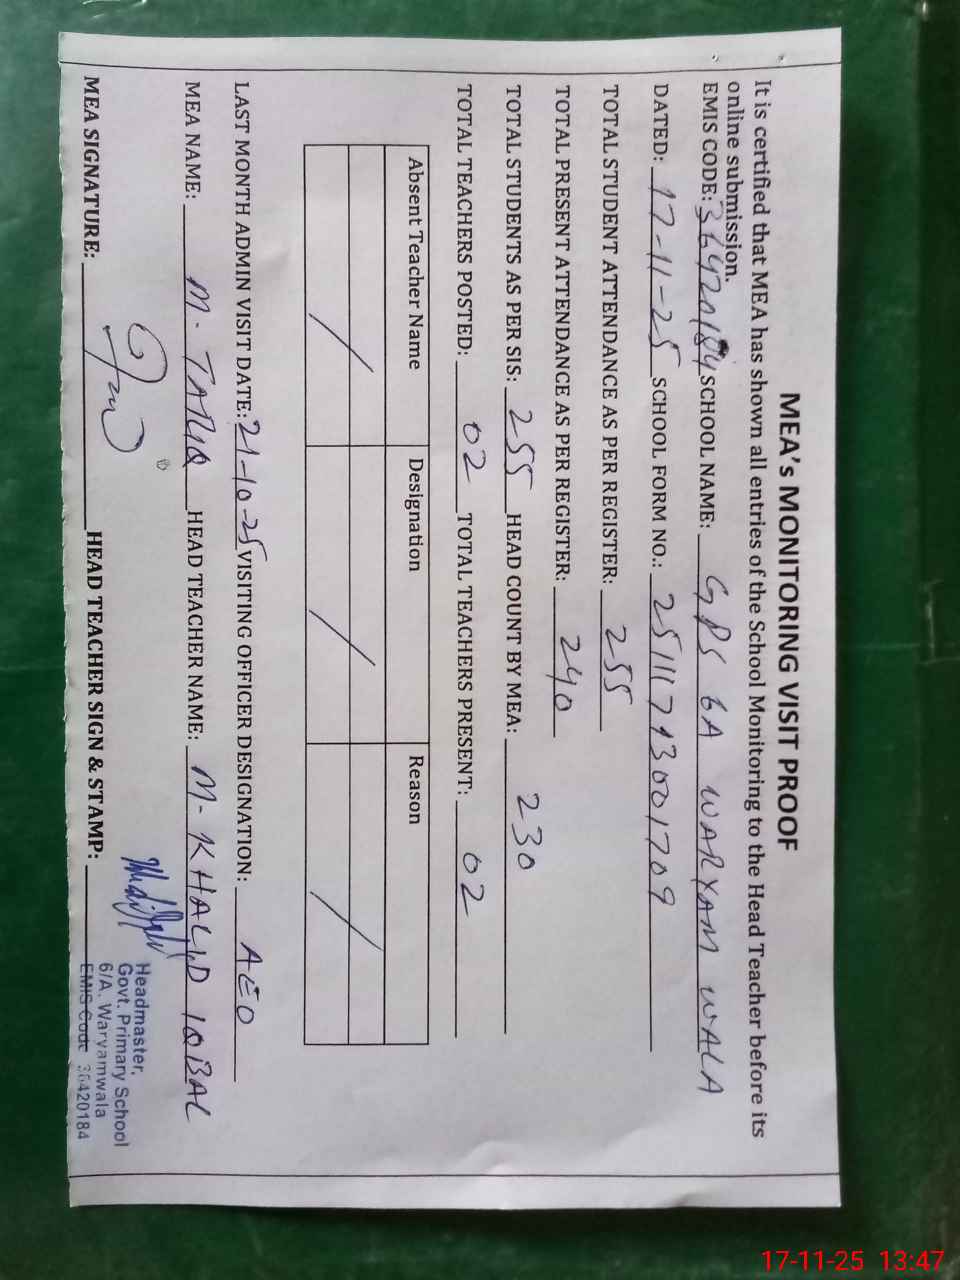 MEA's MONITORING VISIT PROOF
It is certified that MEA has shown all entries of the School Monitoring to the Head Teacher before its
online submission.
EMIS CODE: 36420184 SCHOOL NAME: GPS 6A WARYAM WALA
DATED: 17-11-25 SCHOOL FORM NO.: 25111713001709
TOTAL STUDENT ATTENDANCE AS PER REGISTER: 255
TOTAL PRESENT ATTENDANCE AS PER REGISTER: 240
TOTAL STUDENTS AS PER SIS: 255 HEAD COUNT BY MEA: 230
TOTAL TEACHERS POSTED: 02 TOTAL TEACHERS PRESENT: 02
Absent Teacher Name Designation Reason
/ / /
LAST MONTH ADMIN VISIT DATE: 21-10-25 VISITING OFFICER DESIGNATION: AEO
MEA NAME: M. TARIQ HEAD TEACHER NAME: M. KHALID IQBAL
MEA SIGNATURE: HEAD TEACHER SIGN & STAMP:
Headmaster,
Govt. Primary School
6/A. Waryamwala
EMIS Code 36420184
17-11-25 13:47